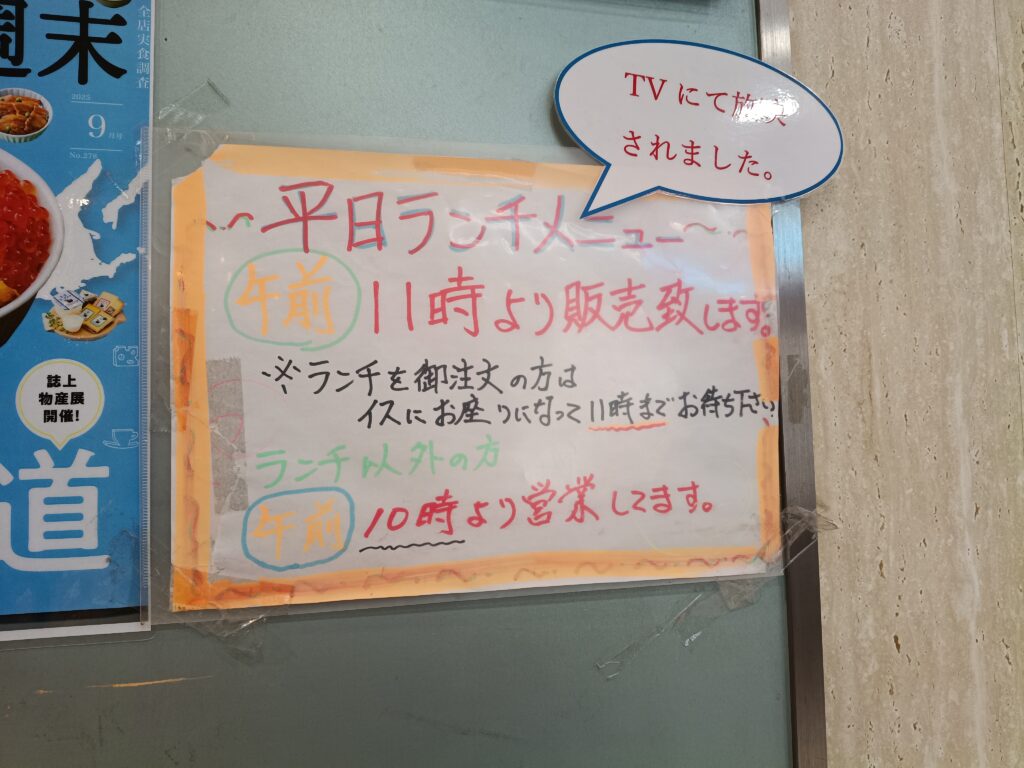 週末
全店実食調査
2025
9月号
No.278
誌上
物産展
開催!
道
TVにて放映
されました。
〜平日ランチメニュー〜
午前 11時より販売致します。
※ランチを御注文の方は
イスにお座りになって11時までお待ち下さい
ランチ以外の方
午前 10時より営業してます。